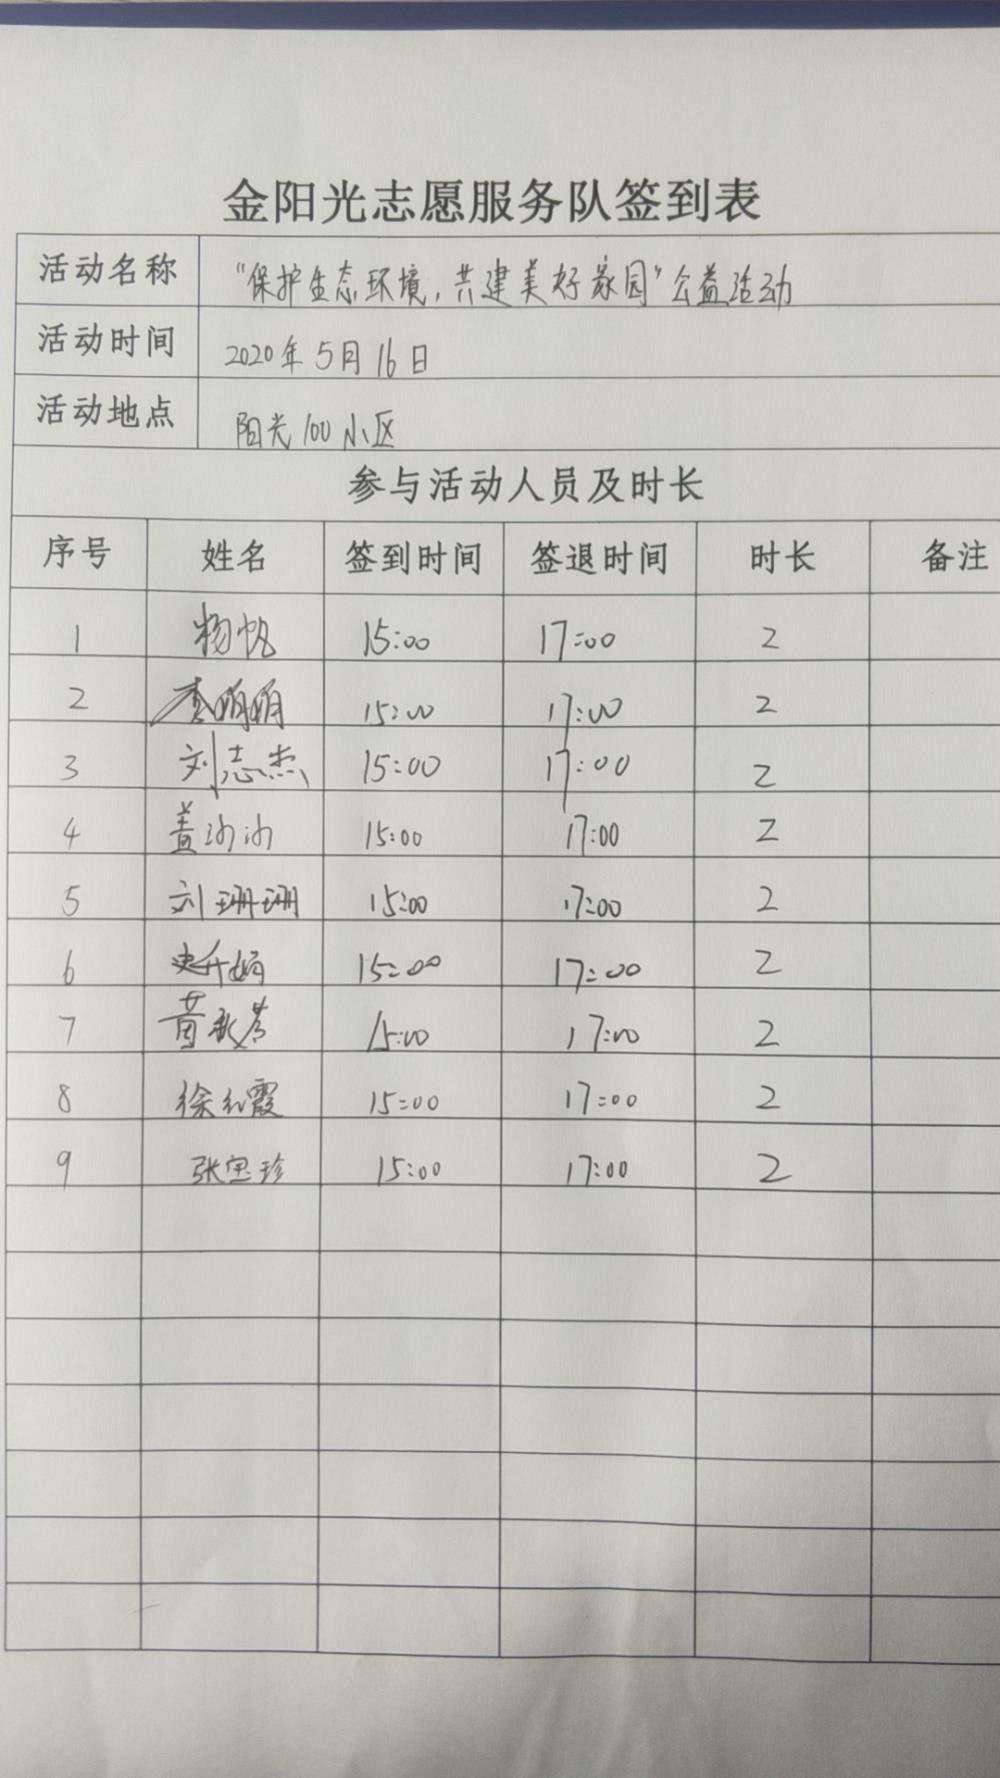 金阳光志愿服务队签到表
活动名称 “保护生态环境，共建美好家园”公益活动
活动时间 2020年5月16日
活动地点 阳光100小区
参与活动人员及时长
序号 姓名 签到时间 签退时间 时长 备注
1 杨帆 15:00 17:00 2
2 李萌萌 15:00 17:00 2
3 刘志杰 15:00 17:00 2
4 盖沙沙 15:00 17:00 2
5 刘珊珊 15:00 17:00 2
6 15:00 17:00 2
7 黄秋芳 15:00 17:00 2
8 徐红霞 15:00 17:00 2
9 张宝珍 15:00 17:00 2